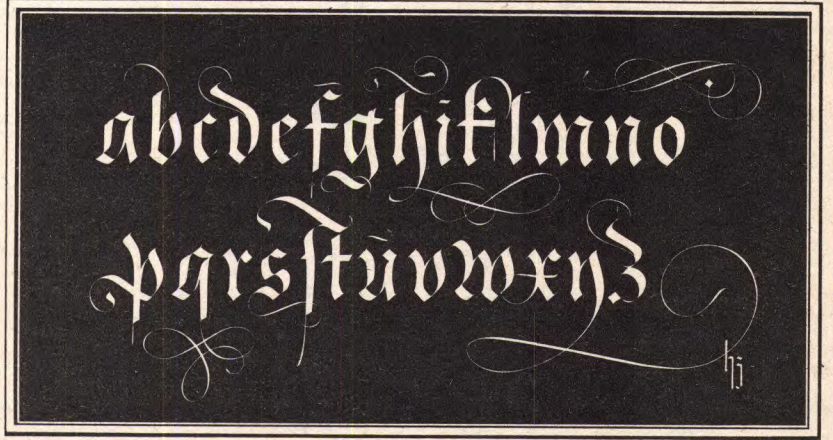 abcdefghiklmno
pqrsſtūvwxyz
hj